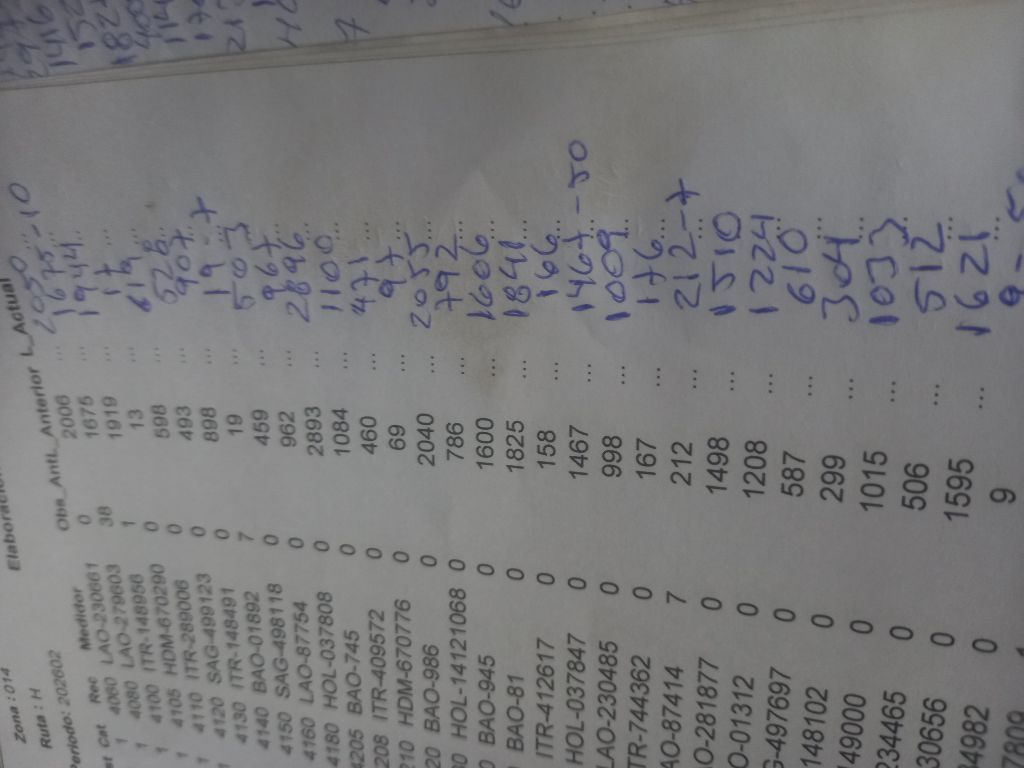 Zona : 014 Elaboracion
Ruta : H
Periodo: 202602
Cat Rec Medidor Obs_Ant L_Anterior L_Actual
1 4060 LAO-230661 0 2006 ... 2050 ... -10
1 4080 LAO-279803 38 1675 ... 1675 ...
1 4100 ITR-148956 1 1919 ... 1944 ...
1 4105 HDM-670290 0 13 ... 17 ...
1 4110 ITR-289006 0 598 ... 619 ...
1 4120 SAG-499123 0 493 ... 528 ...
1 4130 ITR-148491 0 898 ... 907 ...
4140 BAO-01892 7 19 ... 19 ... -7
4150 SAG-498118 0 459 ... 503 ...
4160 LAO-87754 0 962 ... 967 ...
4180 HOL-037808 0 2893 ... 2896 ...
4205 BAO-745 0 1084 ... 1100 ...
208 ITR-409572 0 460 ... 471 ...
210 HDM-670776 0 69 ... 97 ...
20 BAO-986 0 2040 ... 2055 ...
80 HOL-14121068 0 786 ... 792 ...
BAO-945 0 1600 ... 1606 ...
BAO-81 0 1825 ... 1841 ...
ITR-412617 0 158 ... 166 ...
HOL-037847 0 1467 ... 1467 ... -50
LAO-230485 0 998 ... 1009 ...
TR-744362 0 167 ... 176 ...
AO-87414 7 212 ... 212 -7
O-281877 0 1498 ... 1510 ...
O-01312 0 1208 ... 1224 ...
G-497697 0 587 ... 610 ...
148102 0 299 ... 304 ...
149000 0 1015 ... 1033 ...
234465 0 506 ... 512 ...
30656 0 1595 ... 1621 ...
94982 0 9
7809